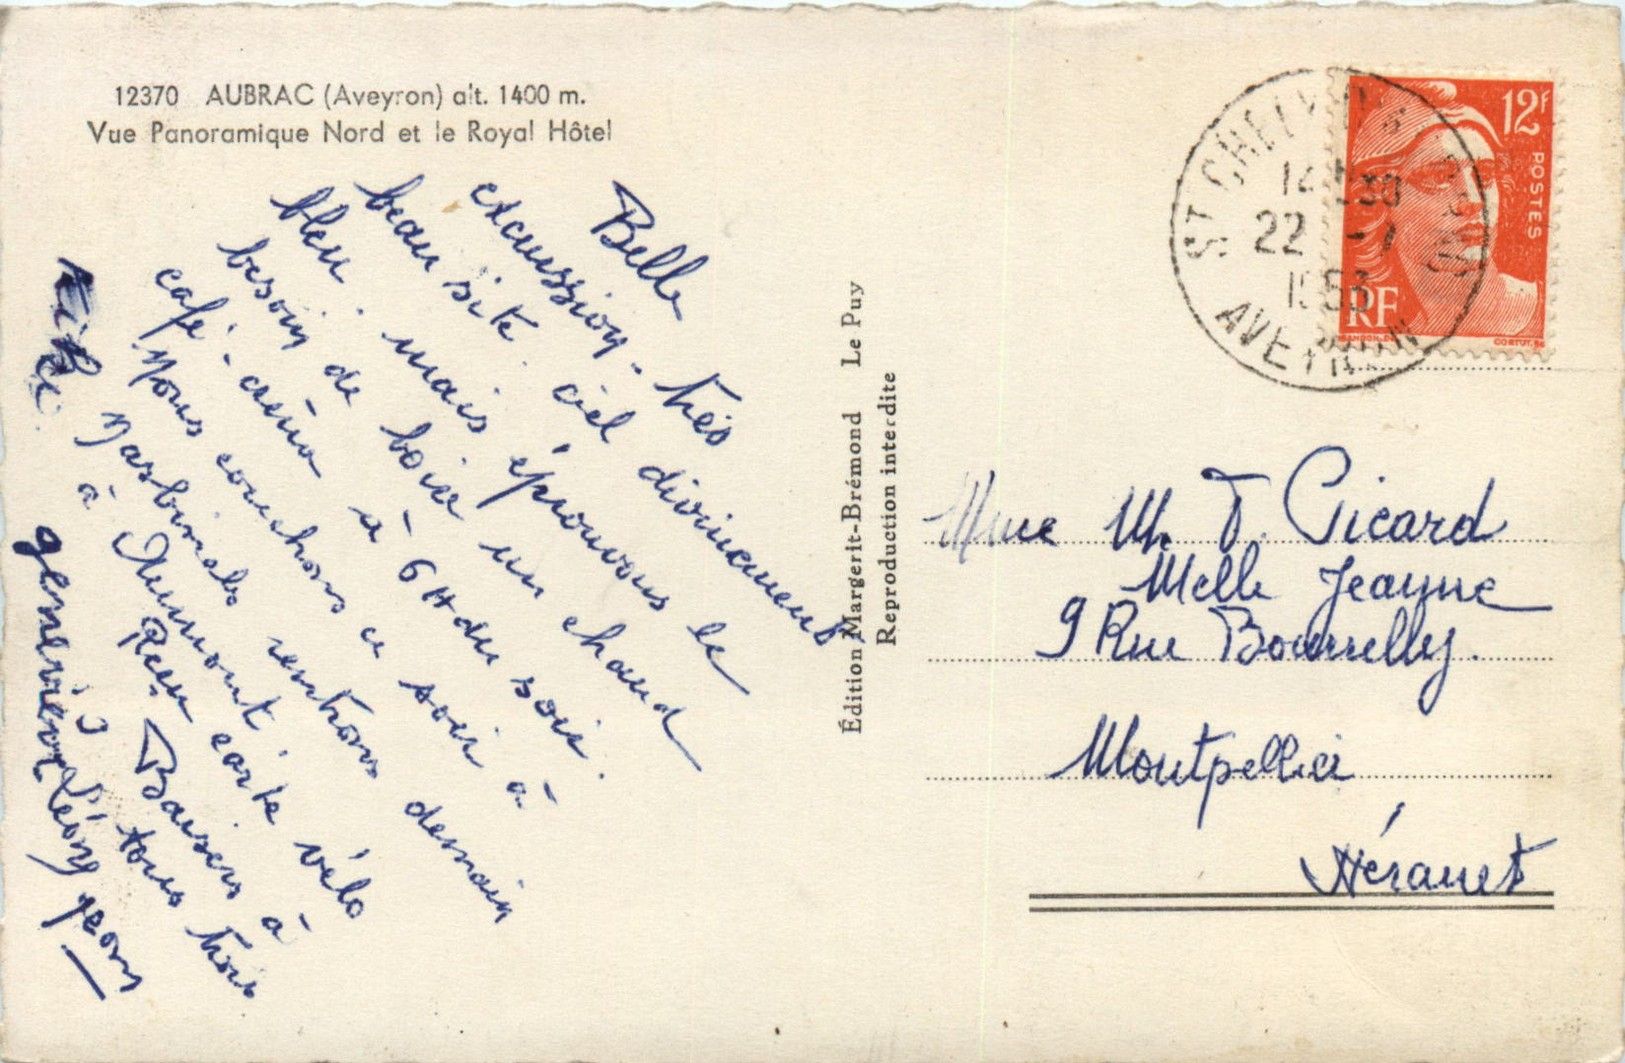 12370 AUBRAC (Aveyron) alt. 1400 m.
Vue Panoramique Nord et le Royal Hôtel
Belle
excursion - très
beau site ciel divinement
bleu. mais éprouvons le
besoin de boire un chaud
café - à 6 H du soir.
Nous couchons ce soir à
Nasbinals rentrons demain
à Aumont.
Reçu carte vélo
Baisers à
tous trois
geneviève Léon Jean
Édition Margerit-Brémond Le Puy
Reproduction interdite
ST CHELY D'A
14 30
22 -7
1953
AVEYRON
12F
POSTES
RF
Mme M. F. Picard
Melle Jeanne
9 Rue Bourrelly.
Montpellier
Hérault